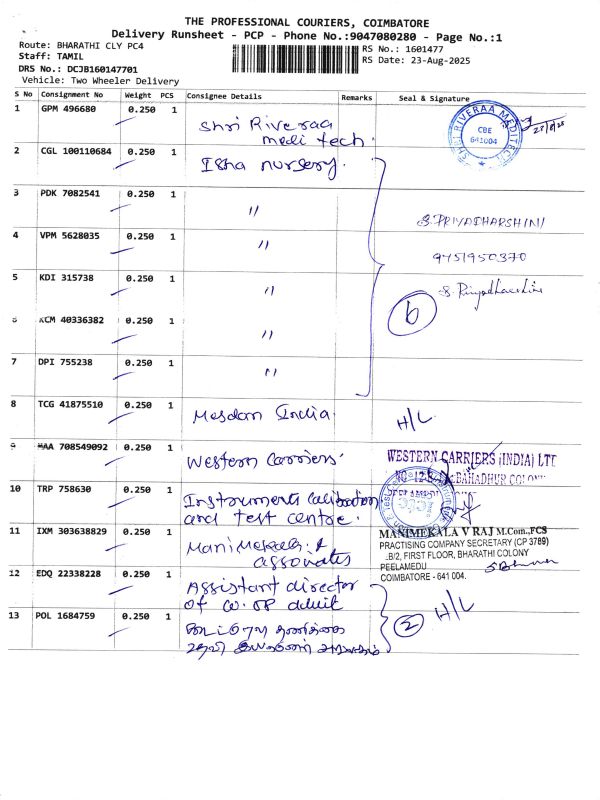 THE PROFESSIONAL COURIERS, COIMBATORE
Delivery Runsheet - PCP - Phone No.:9047080280 - Page No.:1
Route: BHARATHI CLY PC4
RS No.: 1601477
Staff: TAMIL
RS Date: 23-Aug-2025
DRS No.: DCJB160147701
Vehicle: Two Wheeler Delivery
S No Consignment No Weight PCS Consignee Details Remarks Seal & Signature
1 GPM 496680 0.250 1 Shri Riveraa
medi tech.
SHRI RIVERAA MEDITECH
CBE
641004
23/8/25
2 CGL 100110684 0.250 1 Isha nursery.
3 PDK 7082541 0.250 1 "
S.PRIYADHARSHINI
4 VPM 5628035 0.250 1 "
9751950370
5 KDI 315738 0.250 1 "
S. Priyadharshini
6 KCM 40336382 0.250 1 "
6
7 DPI 755238 0.250 1 "
8 TCG 41875510 0.250 1 Mesdan India. H/L
9 MAA 708549092 0.250 1 Western Carriers
WESTERN CARRIERS (INDIA) LTD
BAHADHUR COLONY
10 TRP 758630 0.250 1 Instruments Calibration
and test centre.
11 IXM 303638829 0.250 1 Manimekala &
assoviates
MANIMEKALA V RAJ M.Com.,FCS
PRACTISING COMPANY SECRETARY (CP 3789)
.B/2, FIRST FLOOR, BHARATHI COLONY
PEELAMEDU
COIMBATORE - 641 004.
12 EDQ 22338228 0.250 1 Assistant director
of co.op audit
2 H/L
13 POL 1684759 0.250 1